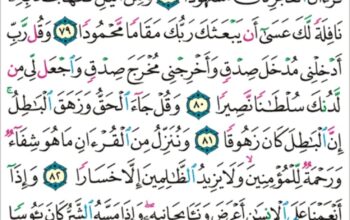 نَافِلَةً لَّكَ عَسَىٰٓ أَن يَبۡعَثَكَ رَبُّكَ مَقَامٗا مَّحۡمُودٗا ٧٩ وَقُل رَّبِّ
أَدۡخِلۡنِي مُدۡخَلَ صِدۡقٖ وَأَخۡرِجۡنِي مُخۡرَجَ صِدۡقٖ وَٱجۡعَل لِّي مِن
لَّدُنكَ سُلۡطَٰنٗا نَّصِيرٗا ٨٠ وَقُلۡ جَآءَ ٱلۡحَقُّ وَزَهَقَ ٱلۡبَٰطِلُۚ
إِنَّ ٱلۡبَٰطِلَ كَانَ زَهُوقٗا ٨١ وَنُنَزِّلُ مِنَ ٱلۡقُرۡءَانِ مَا هُوَ شِفَآءٞ
وَرَحۡمَةٞ لِّلۡمُؤۡمِنِينَ وَلَا يَزِيدُ ٱلظَّٰلِمِينَ إِلَّا خَسَارٗا ٨٢ وَإِذَآ
أَنۡعَمۡنَا عَلَى ٱلۡإِنسَٰنِ أَعۡرَضَ وَنَـَٔا بِجَانِبِهِۦ وَإِذَا مَسَّهُ ٱلشَّرُّ كَانَ يَـُٔوسٗا